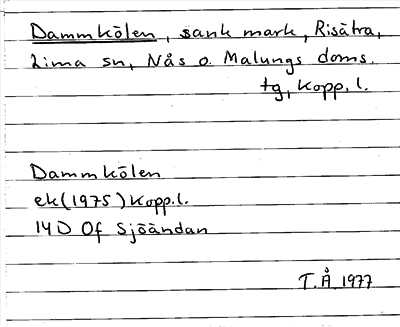 Dammkölen, sank mark, Risätra,
Lima sn, Nås o. Malungs doms.
tg, Kopp. l.
Dammkölen
ek (1975) Kopp. l.
14D 0f Sjöändan
T. Å. 1977